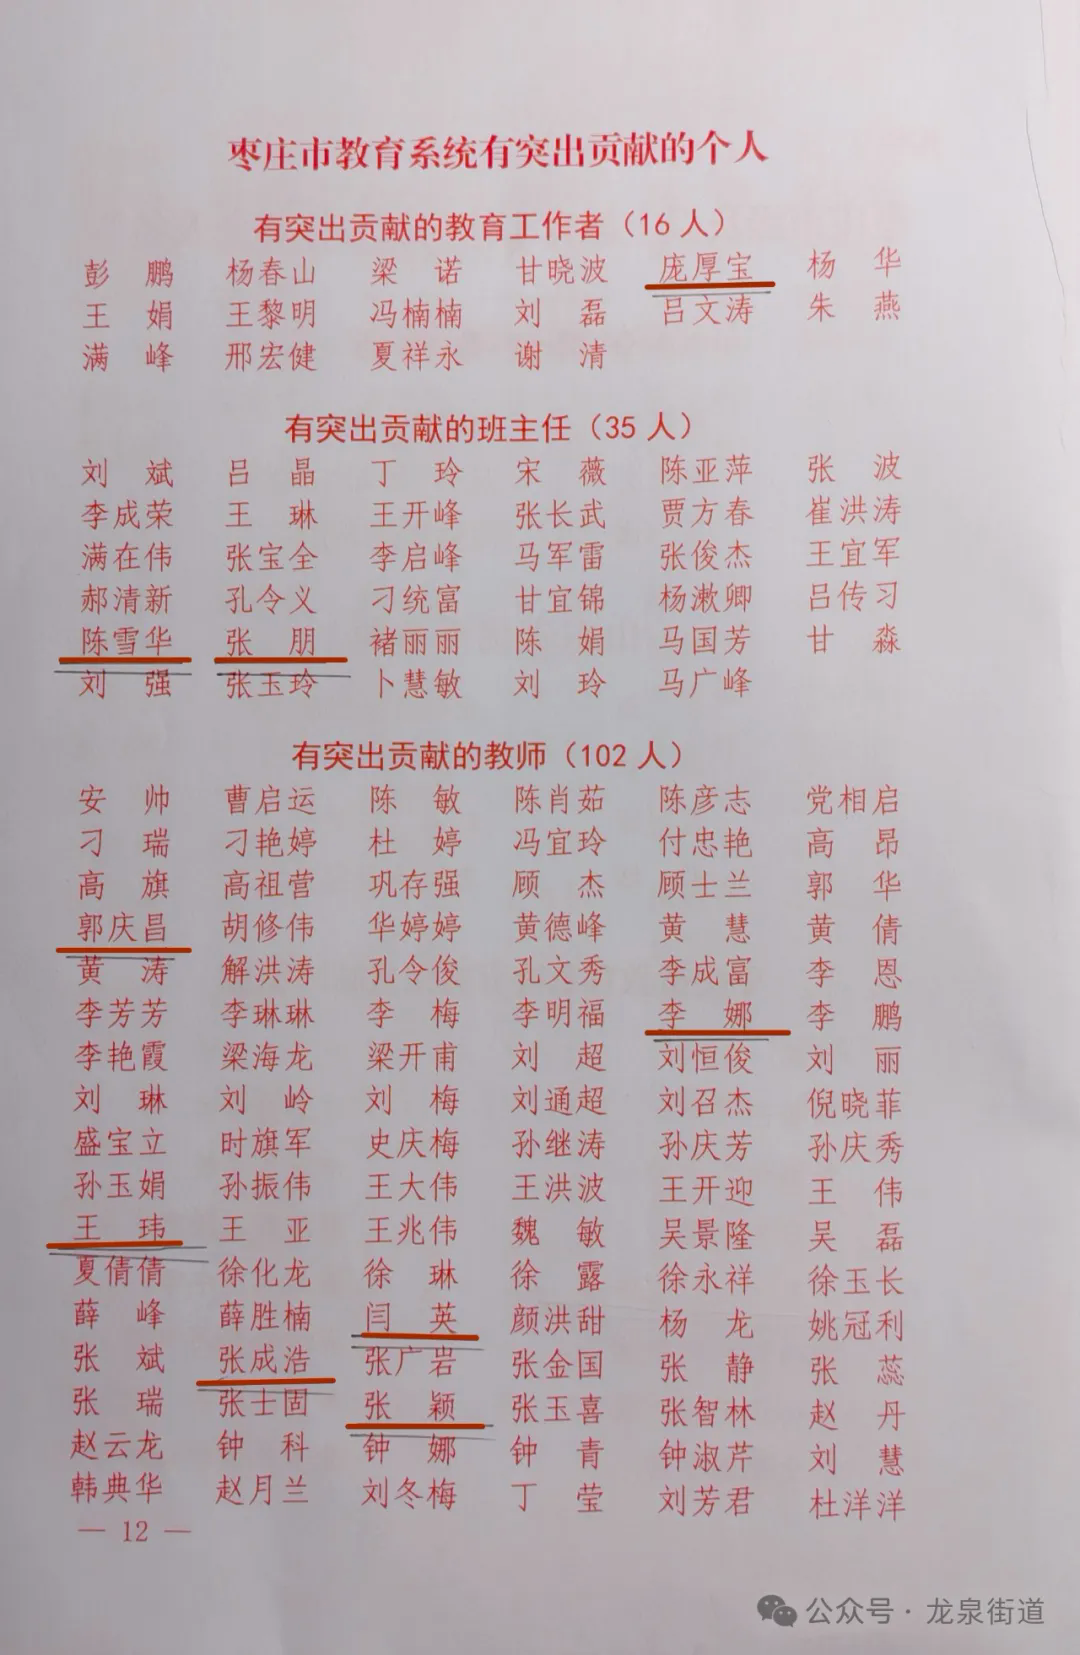 枣庄市教育系统有突出贡献的个人
有突出贡献的教育工作者（16人）
彭 鹏 杨春山 梁 诺 甘晓波 庞厚宝 杨 华
王 娟 王黎明 冯楠楠 刘 磊 吕文涛 朱 燕
满 峰 邢宏健 夏祥永 谢 清
有突出贡献的班主任（35人）
刘 斌 吕 晶 丁 玲 宋 薇 陈亚萍 张 波
李成荣 王 琳 王开峰 张长武 贾方春 崔洪涛
满在伟 张宝全 李启峰 马军雷 张俊杰 王宜军
郝清新 孔令义 刁统富 甘宜锦 杨漱卿 吕传习
陈雪华 张 朋 褚丽丽 陈 娟 马国芳 甘 淼
刘 强 张玉玲 卜慧敏 刘 玲 马广峰
有突出贡献的教师（102人）
安 帅 曹启运 陈 敏 陈肖茹 陈彦志 党相启
刁 瑞 刁艳婷 杜 婷 冯宜玲 付忠艳 高 昂
高 旗 高祖营 巩存强 顾 杰 顾士兰 郭 华
郭庆昌 胡修伟 华婷婷 黄德峰 黄 慧 黄 倩
黄 涛 解洪涛 孔令俊 孔文秀 李成富 李 恩
李芳芳 李琳琳 李 梅 李明福 李 娜 李 鹏
李艳霞 梁海龙 梁开甫 刘 超 刘恒俊 刘 丽
刘 琳 刘 岭 刘 梅 刘通超 刘召杰 倪晓菲
盛宝立 时旗军 史庆梅 孙继涛 孙庆芳 孙庆秀
孙玉娟 孙振伟 王大伟 王洪波 王开迎 王 伟
王 玮 王 亚 王兆伟 魏 敏 吴景隆 吴 磊
夏倩倩 徐化龙 徐 琳 徐 露 徐永祥 徐玉长
薛 峰 薛胜楠 闫 英 颜洪甜 杨 龙 姚冠利
张 斌 张成浩 张广岩 张金国 张 静 张 蕊
张 瑞 张士固 张 颖 张玉喜 张智林 赵 丹
赵云龙 钟 科 钟 娜 钟 青 钟淑芹 刘 慧
韩典华 赵月兰 刘冬梅 丁 莹 刘芳君 杜洋洋
— 12 —
公众号·龙泉街道